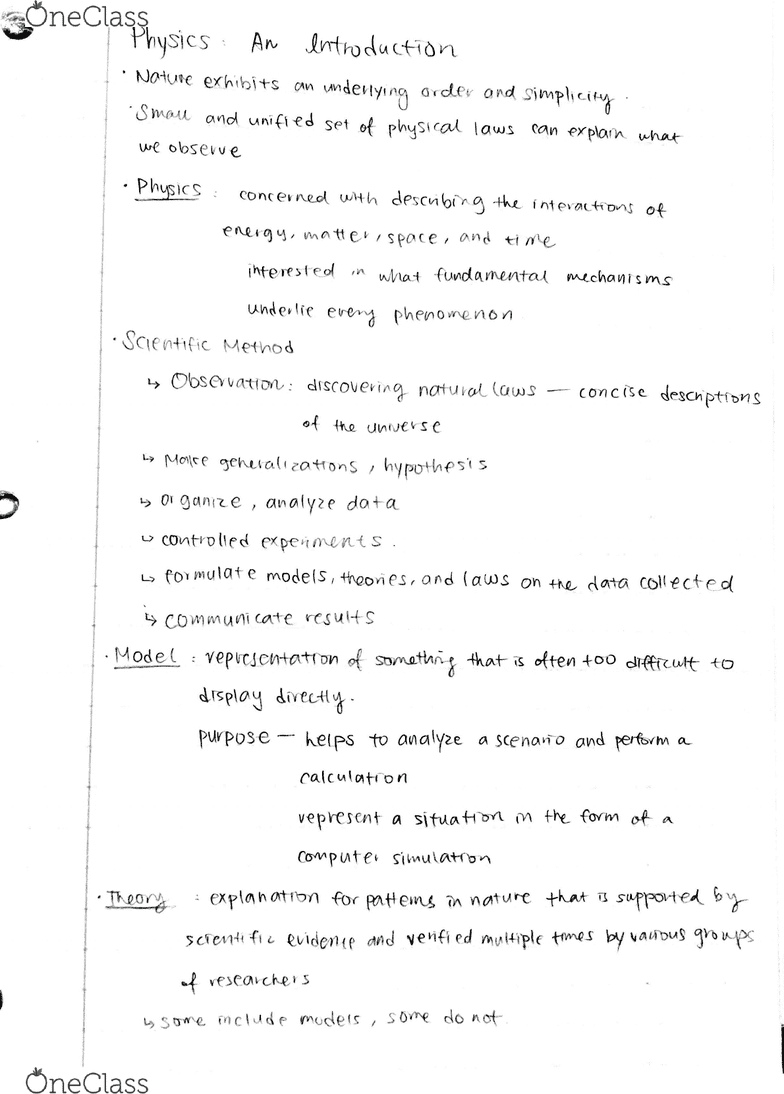 OneClass
Physics : An Introduction
· Nature exhibits an underlying order and simplicity.
· Small and unified set of physical laws can explain what
we observe
· Physics : concerned with describing the interactions of
energy, matter, space, and time
interested in what fundamental mechanisms
underlie every phenomenon
· Scientific Method
↳ Observation : discovering natural laws — concise descriptions
of the universe
↳ Make generalizations, hypothesis
↳ organize, analyze data
↳ controlled experiments.
↳ formulate models, theories, and laws on the data collected
↳ communicate results
· Model : representation of something that is often too difficult to
display directly.
purpose — helps to analyze a scenario and perform a
calculation
represent a situation in the form of a
computer simulation
· Theory : explanation for patterns in nature that is supported by
scientific evidence and verified multiple times by various groups
of researchers
↳ some include models, some do not
OneClass